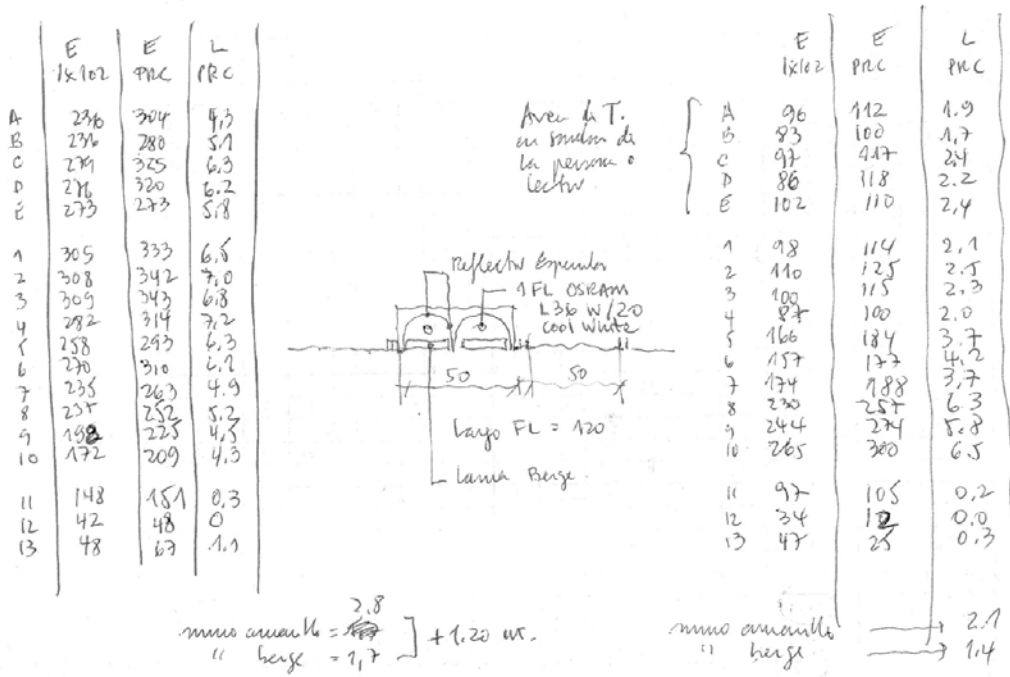 E E L
1x102 PRC PRC
A 236 304 4,3
B 236 280 5.1
C 279 325 6,3
D 276 320 6.2
E 273 273 5,8
1 305 333 6,5
2 308 342 7,0
3 309 343 6,8
4 282 314 7,2
5 258 293 6,3
6 270 310 6,1
7 235 263 4.9
8 237 252 5.2
9 198 225 4,5
10 172 209 4.3
11 148 151 0,3
12 42 48 0
13 48 67 1.1
muro amarillo = 2.8
" beige = 1,7
+ 1.20 mt.
Reflector Espejular
1 FL OSRAM
L36 W/20
cool white
50 50
Largo FL = 120
Lama Beige
Area de T.
en sombra de
la persona o
lector
E E L
1x102 PRC PRC
A 96 112 1.9
B 83 100 1,7
C 97 117 2,4
D 86 118 2.2
E 102 110 2,4
1 98 114 2.1
2 110 125 2.5
3 100 115 2.3
4 87 100 2.0
5 166 184 3.7
6 157 177 4.2
7 174 188 3,7
8 230 257 6.3
9 244 274 5.8
10 265 300 6.5
11 97 105 0,2
12 34 12 0.0
13 47 25 0.3
muro amarillo 2.1
" beige 1.4